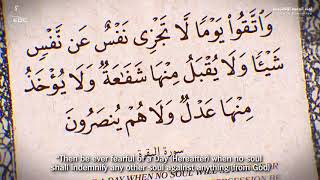 EDC
وَٱتَّقُوا۟ يَوْمًا لَّا تَجْزِى نَفْسٌ عَن نَّفْسٍ
شَيْـًٔا وَلَا يُقْبَلُ مِنْهَا شَفَٰعَةٌ وَلَا يُؤْخَذُ
مِنْهَا عَدْلٌ وَلَا هُمْ يُنصَرُونَ
سورة البقرة
"Then be ever fearful of a Day (Hereafter) when no soul
shall indemnify any other soul against anything (from God)